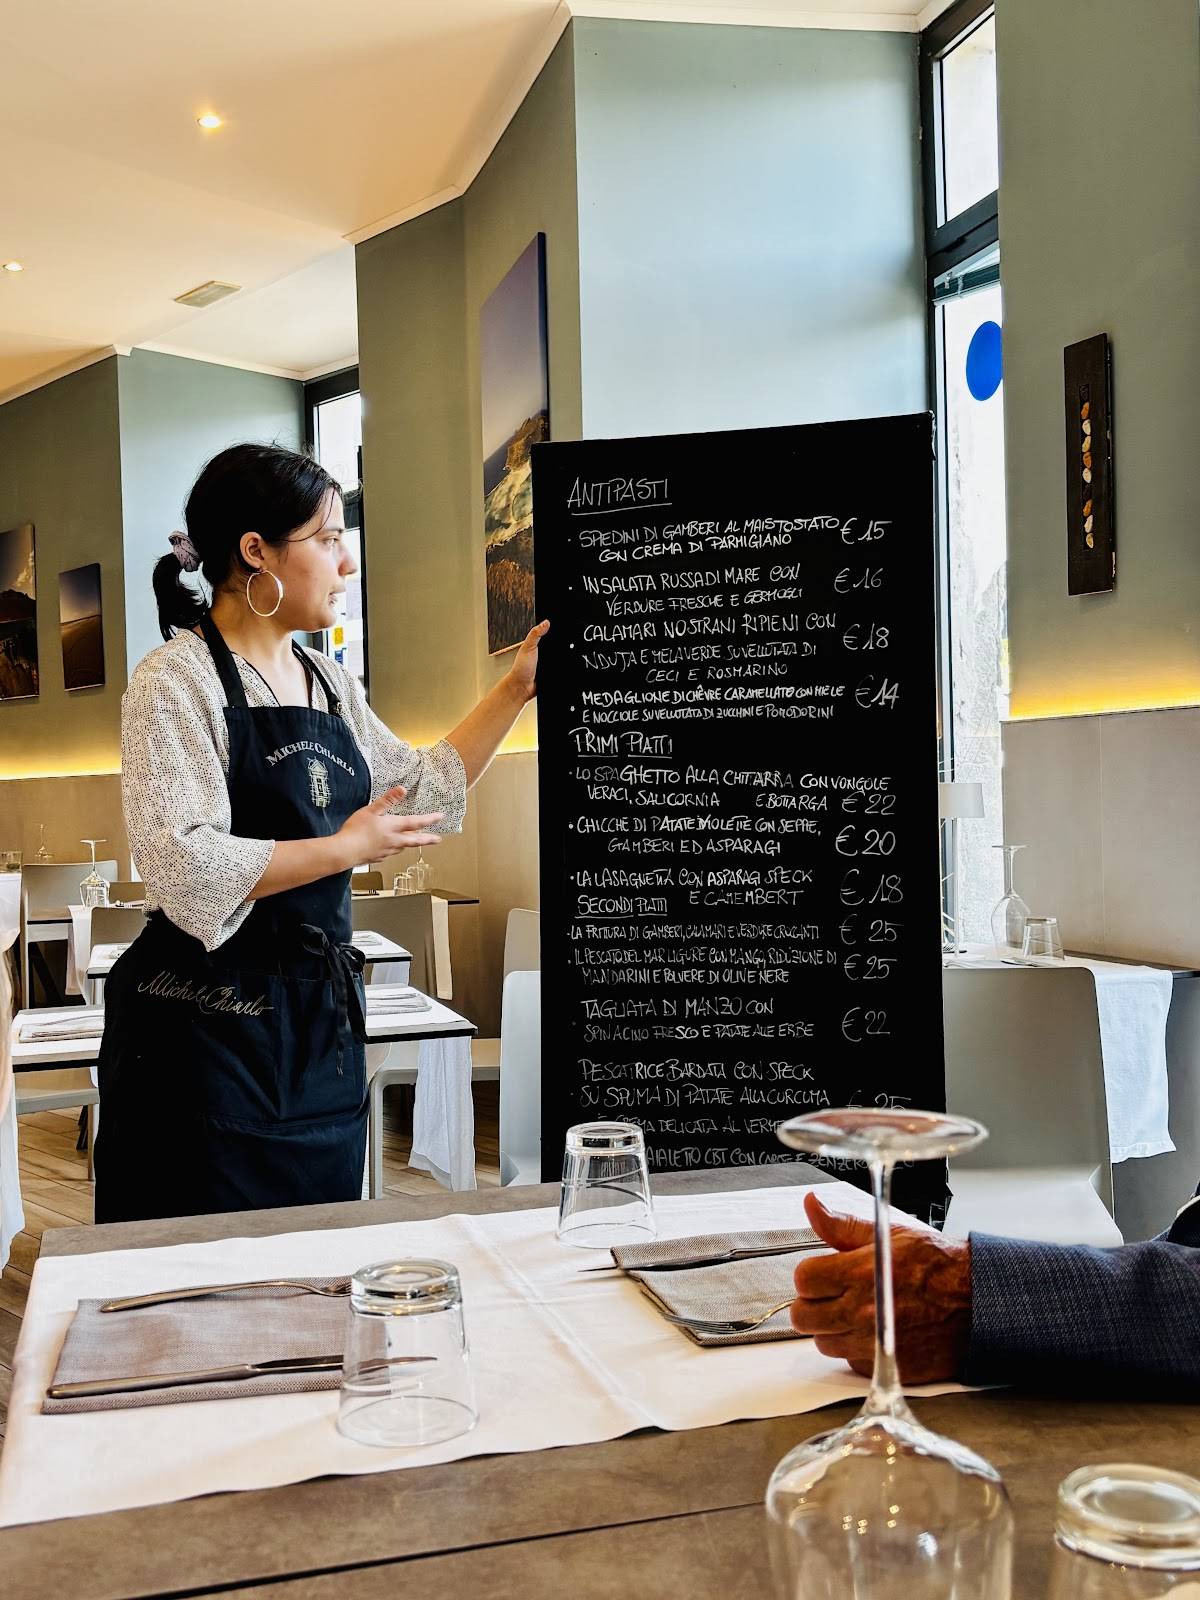 ANTIPASTI
· SPIEDINI DI GAMBERI AL MAIS TOSTATO € 15
CON CREMA DI PARMIGIANO
· INSALATA RUSSA DI MARE CON € 16
VERDURE FRESCHE E GERMOGLI
· CALAMARI NOSTRANI RIPIENI CON € 18
NDUJA E MELA VERDE SU VELLUTATA DI
CECI E ROSMARINO
· MEDAGLIONE DI CHÊVRE CARAMELLATO CON MIELE € 14
E NOCCIOLE SU VELLUTATA DI ZUCCHINI E POMODORINI
PRIMI PIATTI
· LO SPAGHETTO ALLA CHITARRA CON VONGOLE
VERACI, SALICORNIA E BOTTARGA € 22
· CHICCHE DI PATATE VIOLETTE CON SEPPIE, € 20
GAMBERI ED ASPARAGI
· LA LASAGNETTA CON ASPARAGI SPECK € 18
E CAMEMBERT
SECONDI PIATTI
· LA FRITTURA DI GAMBERI, CALAMARI E VERDURE CROCCANTI € 25
· IL PESCATO DEL MAR LIGURE CON MANGO, RIDUZIONE DI € 25
MANDARINI E POLVERE DI OLIVE NERE
TAGLIATA DI MANZO CON € 22
· SPINACINO FRESCO E PATATE ALLE ERBE
PESCATRICE BARDATA CON SPECK
· SU SPUMA DI PATATE ALLA CURCUMA € 25
CREMA DELICATA AL
CBT CON E ZENZERO
MICHELE CHIARLO
Michele Chiarlo